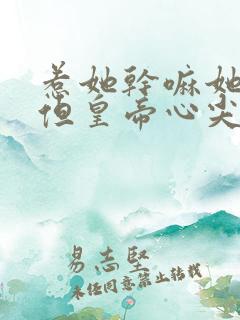 惹她幹嘛她
但皇帝心尖
易志堅
未经同意禁止转载